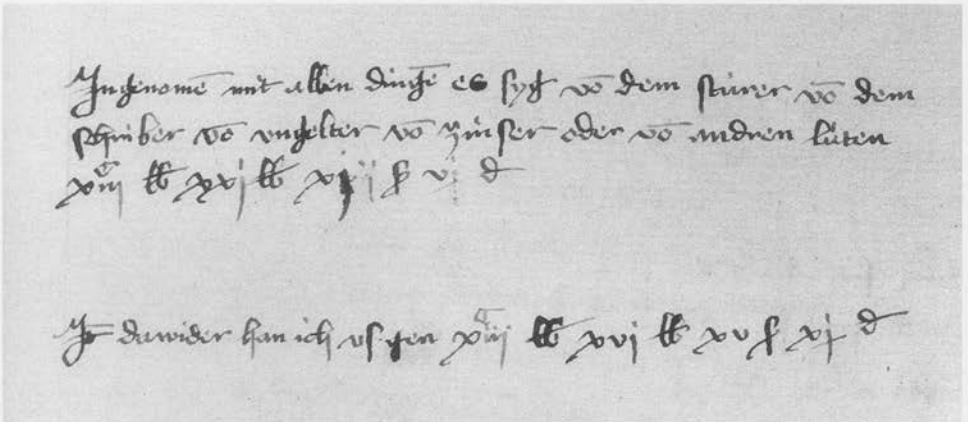 Ingenomē mit allen dingē es syg vō dem stúrer vō dem
schriber vō ungelter vō zinser oder vō andren lúten
xiiij^c lb xvj lb xiij ß vj d
It dawider han ich us gen xiiij^c lb xvj lb xv ß xj d